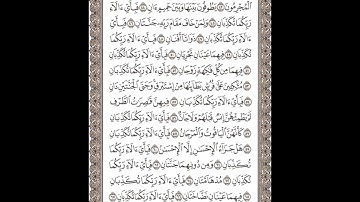 ٱلْمُجْرِمُونَ ٤٣ يَطُوفُونَ بَيْنَهَا وَبَيْنَ حَمِيمٍ ءَانٍ ٤٤ فَبِأَيِّ ءَالَآءِ
رَبِّكُمَا تُكَذِّبَانِ ٤٥ وَلِمَنْ خَافَ مَقَامَ رَبِّهِۦ جَنَّتَانِ ٤٦ فَبِأَيِّ
ءَالَآءِ رَبِّكُمَا تُكَذِّبَانِ ٤٧ ذَوَاتَآ أَفْنَانٍ ٤٨ فَبِأَيِّ ءَالَآءِ رَبِّكُمَا
تُكَذِّبَانِ ٤٩ فِيهِمَا عَيْنَانِ تَجْرِيَانِ ٥٠ فَبِأَيِّ ءَالَآءِ رَبِّكُمَا تُكَذِّبَانِ
٥١ فِيهِمَا مِن كُلِّ فَٰكِهَةٍ زَوْجَانِ ٥٢ فَبِأَيِّ ءَالَآءِ رَبِّكُمَا تُكَذِّبَانِ
٥٣ مُتَّكِـِٔينَ عَلَىٰ فُرُشٍۭ بَطَآئِنُهَا مِنْ إِسْتَبْرَقٍ وَجَنَى ٱلْجَنَّتَيْنِ دَانٍ
٥٤ فَبِأَيِّ ءَالَآءِ رَبِّكُمَا تُكَذِّبَانِ ٥٥ فِيهِنَّ قَٰصِرَٰتُ ٱلطَّرْفِ
لَمْ يَطْمِثْهُنَّ إِنسٌ قَبْلَهُمْ وَلَا جَآنٌّ ٥٦ فَبِأَيِّ ءَالَآءِ رَبِّكُمَا تُكَذِّبَانِ
٥٧ كَأَنَّهُنَّ ٱلْيَاقُوتُ وَٱلْمَرْجَانُ ٥٨ فَبِأَيِّ ءَالَآءِ رَبِّكُمَا تُكَذِّبَانِ
٥٩ هَلْ جَزَآءُ ٱلْإِحْسَٰنِ إِلَّا ٱلْإِحْسَٰنُ ٦٠ فَبِأَيِّ ءَالَآءِ رَبِّكُمَا
تُكَذِّبَانِ ٦١ وَمِن دُونِهِمَا جَنَّتَانِ ٦٢ فَبِأَيِّ ءَالَآءِ رَبِّكُمَا
تُكَذِّبَانِ ٦٣ مُدْهَآمَّتَانِ ٦٤ فَبِأَيِّ ءَالَآءِ رَبِّكُمَا تُكَذِّبَانِ
٦٥ فِيهِمَا عَيْنَانِ نَضَّاخَتَانِ ٦٦ فَبِأَيِّ ءَالَآءِ رَبِّكُمَا تُكَذِّبَانِ